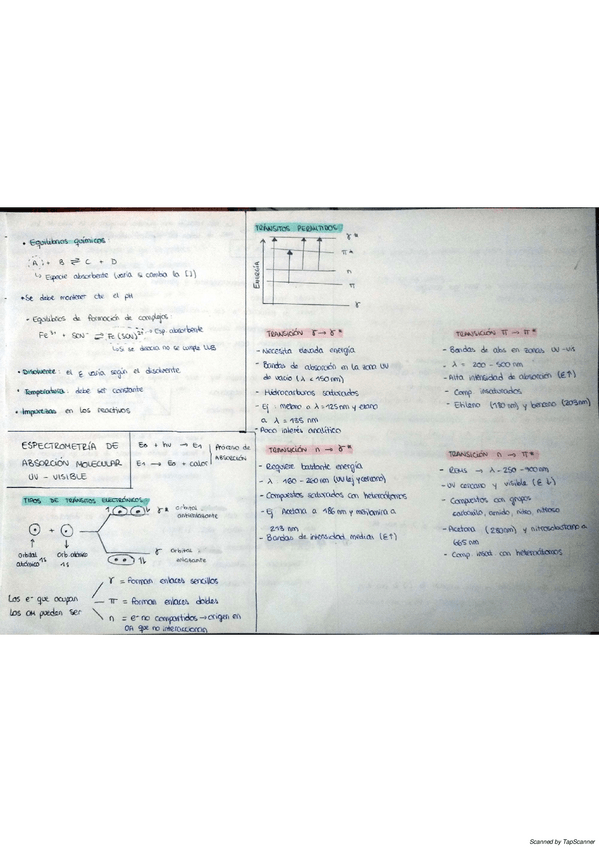 • Equilibrios químicos:
A + B ⇌ C + D
↳ Especie absorbente (varía si cambia la [ ])
• Se debe mantener cte el pH
- Equilibrios de formación de complejos:
Fe³⁺ + SCN⁻ ⇌ Fe(SCN)²⁺ → Esp. absorbente
↳ si se disocia no se cumple LLB
• Disolvente: el ε varía según el disolvente
• Temperatura: debe ser constante
• Impurezas en los reactivos
ESPECTROMETRÍA DE
ABSORCIÓN MOLECULAR
UV - VISIBLE
E₀ + hν → E₁
E₁ → E₀ + calor
Proceso de
ABSORCIÓN
TIPOS DE TRÁNSITOS ELECTRÓNICOS
γ* orbital
antienlazante
+
orbital
atómico 1s
Orb. atómico
1s
γ orbital
enlazante
Los e⁻ que ocupan
los OM pueden ser
γ = forman enlaces sencillos
π = forman enlaces dobles
n = e⁻ no compartidos → origen en
OA que no interaccionan
TRÁNSITOS PERMITIDOS
ENERGÍA
γ*
π*
n
π
γ
TRANSICIÓN γ → γ*
- Necesita elevada energía
- Bandas de absorción en la zona UV
de vacío (λ < 150 nm)
- Hidrocarburos saturados
- Ej: metano a λ = 125 nm y etano
a λ = 135 nm
- Poco interés analítico
TRANSICIÓN n → γ*
- Requiere bastante energía
- λ 180 - 260 nm (UV lej y cercano)
- Compuestos saturados con heteroátomos
- Ej Acetona a 186 nm y metilamina a
213 nm
- Bandas de intensidad median (ε↑)
TRANSICIÓN π → π*
- Bandas de abs en zonas UV-vis
- λ = 200 - 500 nm
- Alta intensidad de absorción (ε↑)
- Comp insaturados
- Etileno (180 nm) y benceno (203nm)
TRANSICIÓN n → π*
→ λ - 250 - 900 nm
- UV cercano y visible (ε↓)
- Compuestos con grupos
carbonilo, amido, nitro, nitroso
- Acetona (280nm) y nitrosobutano a
665 nm
- Comp. insat. con heteroátomos
Scanned by TapScanner